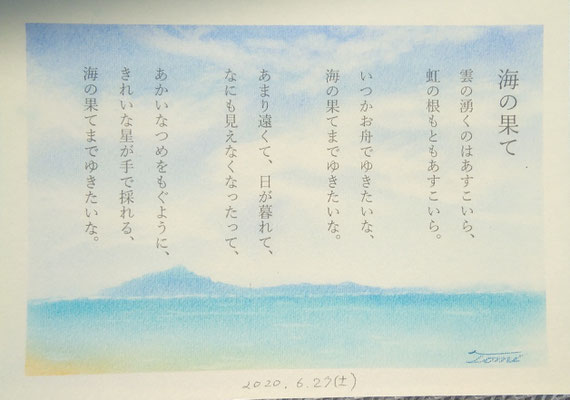 海の果て
雲の湧くのはあすこいら、
虹の根もともあすこいら。
いつかお舟でゆきたいな、
海の果てまでゆきたいな。
あまり遠くて、日が暮れて、
なにも見えなくなったって、
あかいなつめをもぐように、
きれいな星が手で採れる、
海の果てまでゆきたいな。
2020.6.27(土)